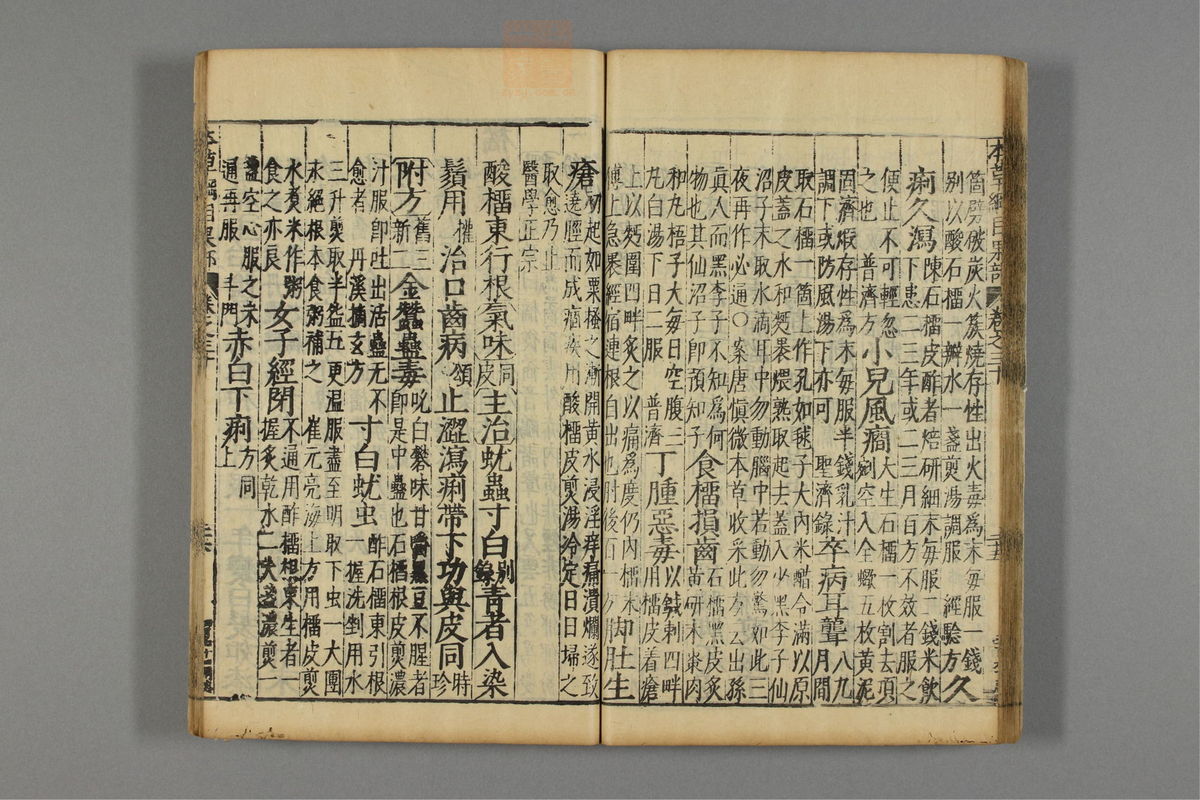 箇劈破炭火簇燒存性出火毒爲末每服一錢
別以酸石橊一瓣水一盞煎湯調服 經驗方 久
痢久瀉 陳石橊皮酢者焙研細末每服二錢米飲
便止不可輕忽
下患二三年或二三月百方不效者服之
之也 普濟方 小兒風癇 大生石橊一枚割去頂
剜空入全蠍五枚黃泥
固濟煆存性爲末每服半錢乳汁
調下或防風湯下亦可 聖濟錄 卒病耳聾 八九
月間
取石橊一箇上作孔如毬子大內米醋令滿以原
皮蓋之水和麪裹煨熟取起去蓋入少黑李子仙
沼子末取水滴耳中勿動腦中若動勿驚如此三
夜再作必通○案唐慎微本草收采此方云出孫
眞人而黑李子不知爲何
物也其仙沼子即預知子 食橊損齒 石橊黑皮炙
黃研末棗肉
和丸梧子大每日空腹三
丸白湯下日二服 普濟 丁腫惡毒 以鍼刺四畔
用橊皮着瘡
上以麪圍四畔炙之以痛爲度仍內橊末
傅上急裹經宿連根自出也肘後百一方 脚上生
瘡 初起如粟搔之漸開黃水浸淫痒痛潰爛遂致
遶脛而成痼疾用酸橊皮煎湯冷定日日掃之
取愈乃止
醫學正宗
酸橊東行根氣味 同
皮 主治蚘蟲寸白 別
錄 青者入染
鬚用 權 治口齒病 頌 止澀瀉痢帶下功與皮同 時
珍
附方 舊三
新二 金蠶蠱毒 吮白礬味甘嚼黑豆不腥者
即是中蠱也石橊根皮煎濃
汁服即吐出活蠱无不
愈者 丹溪摘玄方 寸白蚘虫 酢石橊東引根
一握洗剉用水
三升煎取半盌五更溫服盡至明取下虫一大團
永絕根本食粥補之 崔元亮海上方用橊皮煎
水煮米作粥
食之亦良 女子經閉 不通用酢橊根東生者一
握炙乾水二大盞濃煎一
盞空心服之未
通再服 斗門 赤白下痢 方同
上